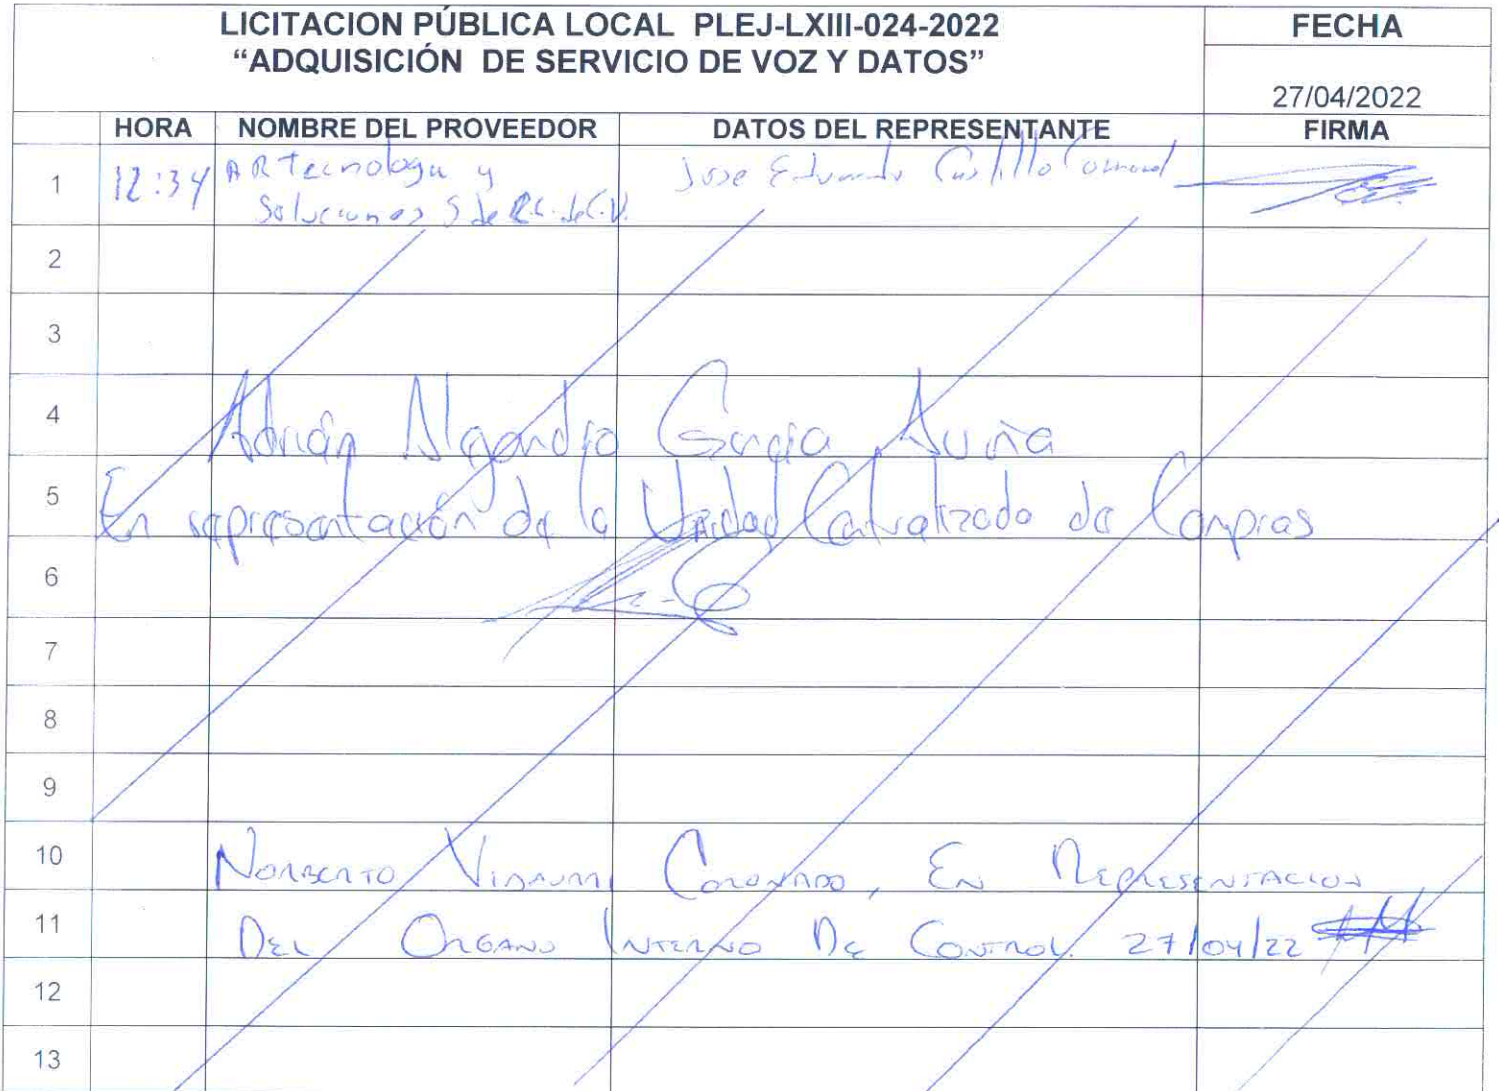 LICITACION PÚBLICA LOCAL PLEJ-LXIII-024-2022
“ADQUISICIÓN DE SERVICIO DE VOZ Y DATOS”
FECHA
27/04/2022
HORA NOMBRE DEL PROVEEDOR DATOS DEL REPRESENTANTE FIRMA
1 12:34 AR Tecnologia y Jose Eduardo Castillo
Soluciones S de R.L. de C.V.
2
3
4 Adrián Alejandro García Acuña
5 En representación de la Unidad Centralizada de Compras
6
7
8
9
10 NORBERTO CORONADO, EN REPRESENTACION
11 DEL ORGANO INTERNO DE CONTROL. 27/04/22
12
13